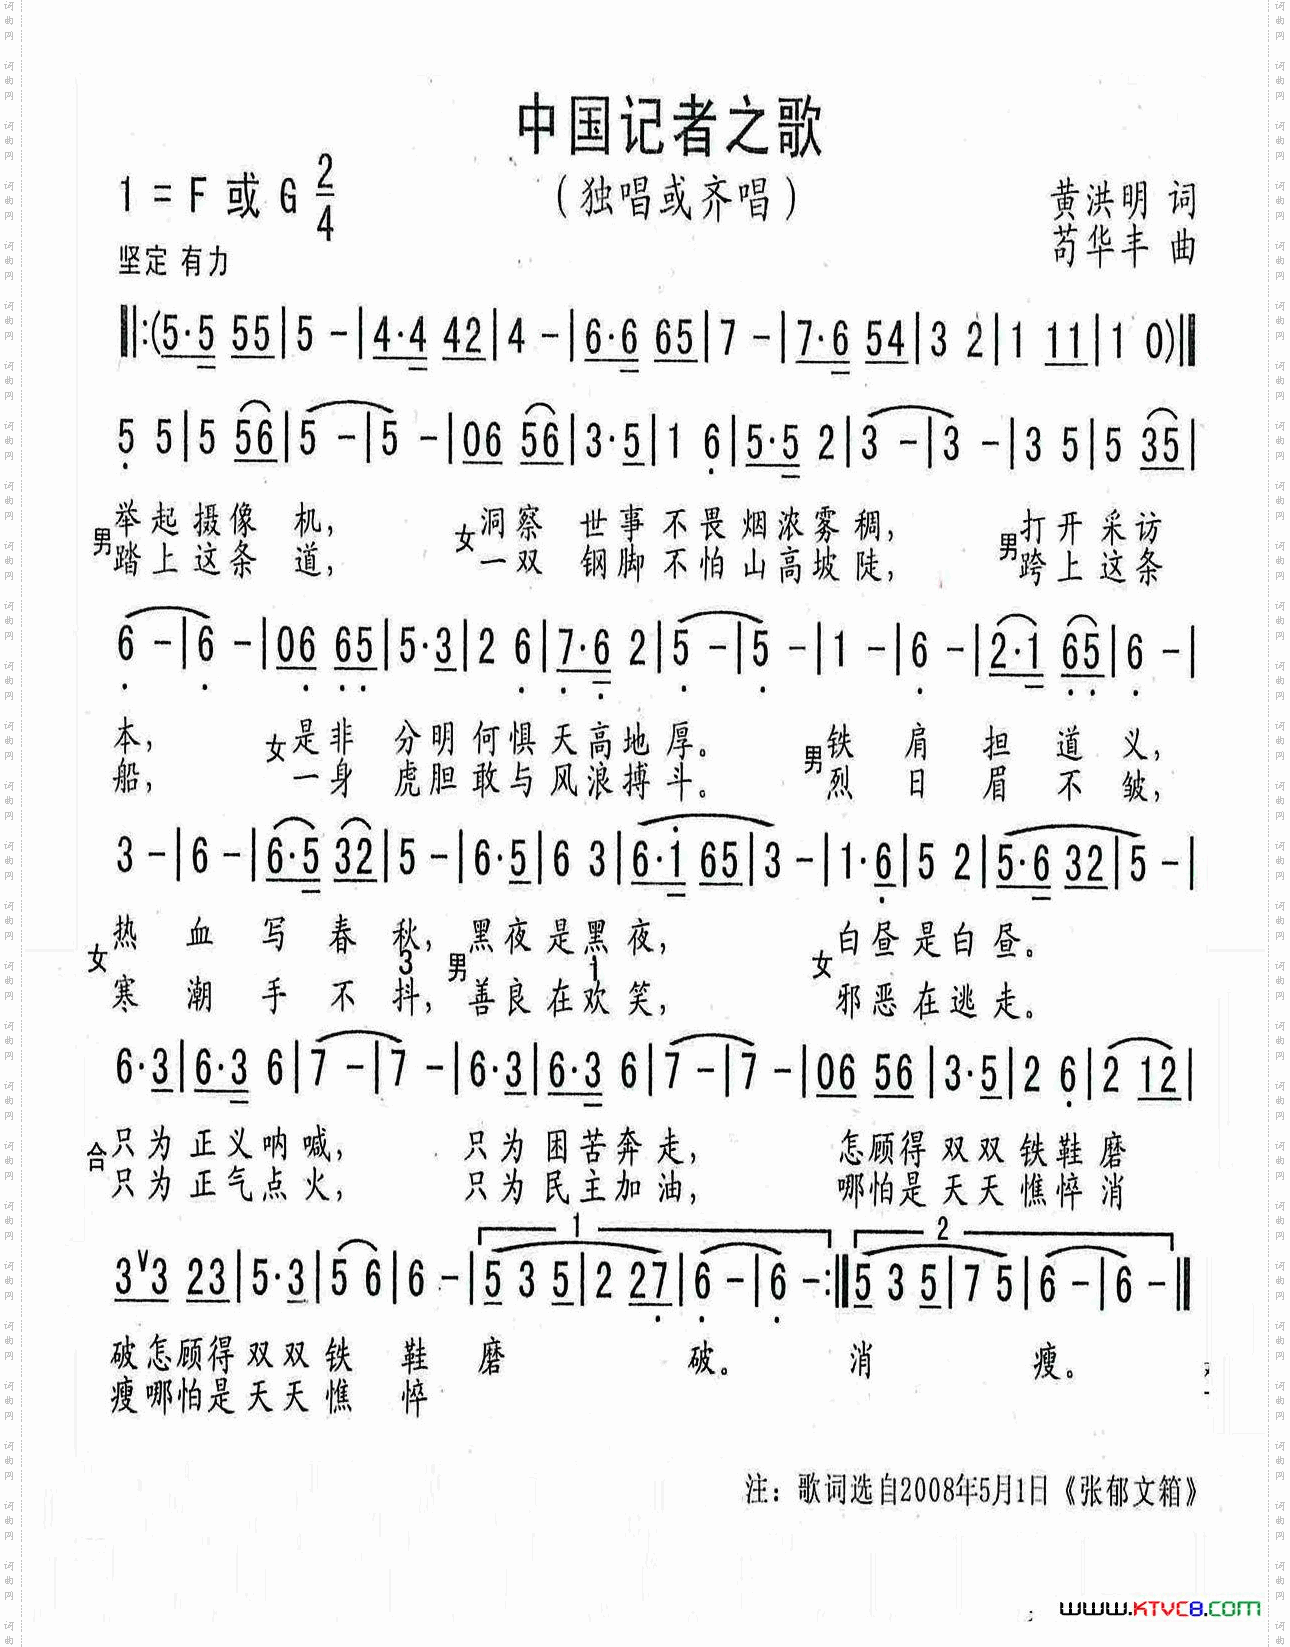 中国记者之歌
1 = F 或 G 2/4
（独唱或齐唱）
黄洪明 词
苟华丰 曲
坚定 有力
‖:(5·5 55|5 -|4·4 42|4 -|6·6 65|7 -|7·6 54|3 2|1 11|1 0)‖
5 5|5 56|5 -|5 -|06 56|3·5|1 6|5·5 2|3 -|3 -|3 5|5 35|
男 举起摄像 机， 女 洞察 世事不畏烟浓雾稠， 男 打开采访
踏上这条 道， 一双 钢脚不怕山高坡陡， 跨上这条
6 -|6 -|06 65|5·3|2 6|7·6 2|5 -|5 -|1 -|6 -|2·1 65|6 -|
本， 女 是非 分明何惧天高地厚。 男 铁 肩 担 道 义，
船， 一身 虎胆敢与风浪搏斗。 烈 日 眉 不 皱，
3 -|6 -|6·5 32|5 -|6·5|6 3|6·1 65|3 -|1·6|5 2|5·6 32|5 -|
女 热 血 写 春 秋， 男 黑夜是黑夜， 女 白昼是白昼。
3 1
寒 潮 手 不 抖， 善良在欢笑， 邪恶在逃走。
6·3|6·3 6|7 -|7 -|6·3|6·3 6|7 -|7 -|06 56|3·5|2 6|2 12|
合 只为 正义呐喊， 只为 困苦奔走， 怎顾得双双铁鞋磨
只为 正气点火， 只为 民主加油， 哪怕是天天憔悴消
1 2
3∨3 23|5·3|5 6|6 -|5 3 5|2 27|6 -|6 -:‖5 3 5|7 5|6 -|6 -‖
破怎顾得双双铁 鞋 磨 破。 消 瘦。
瘦哪怕是天天憔 悴
注：歌词选自2008年5月1日《张郁文箱》
www.KTVC8.COM
词曲网